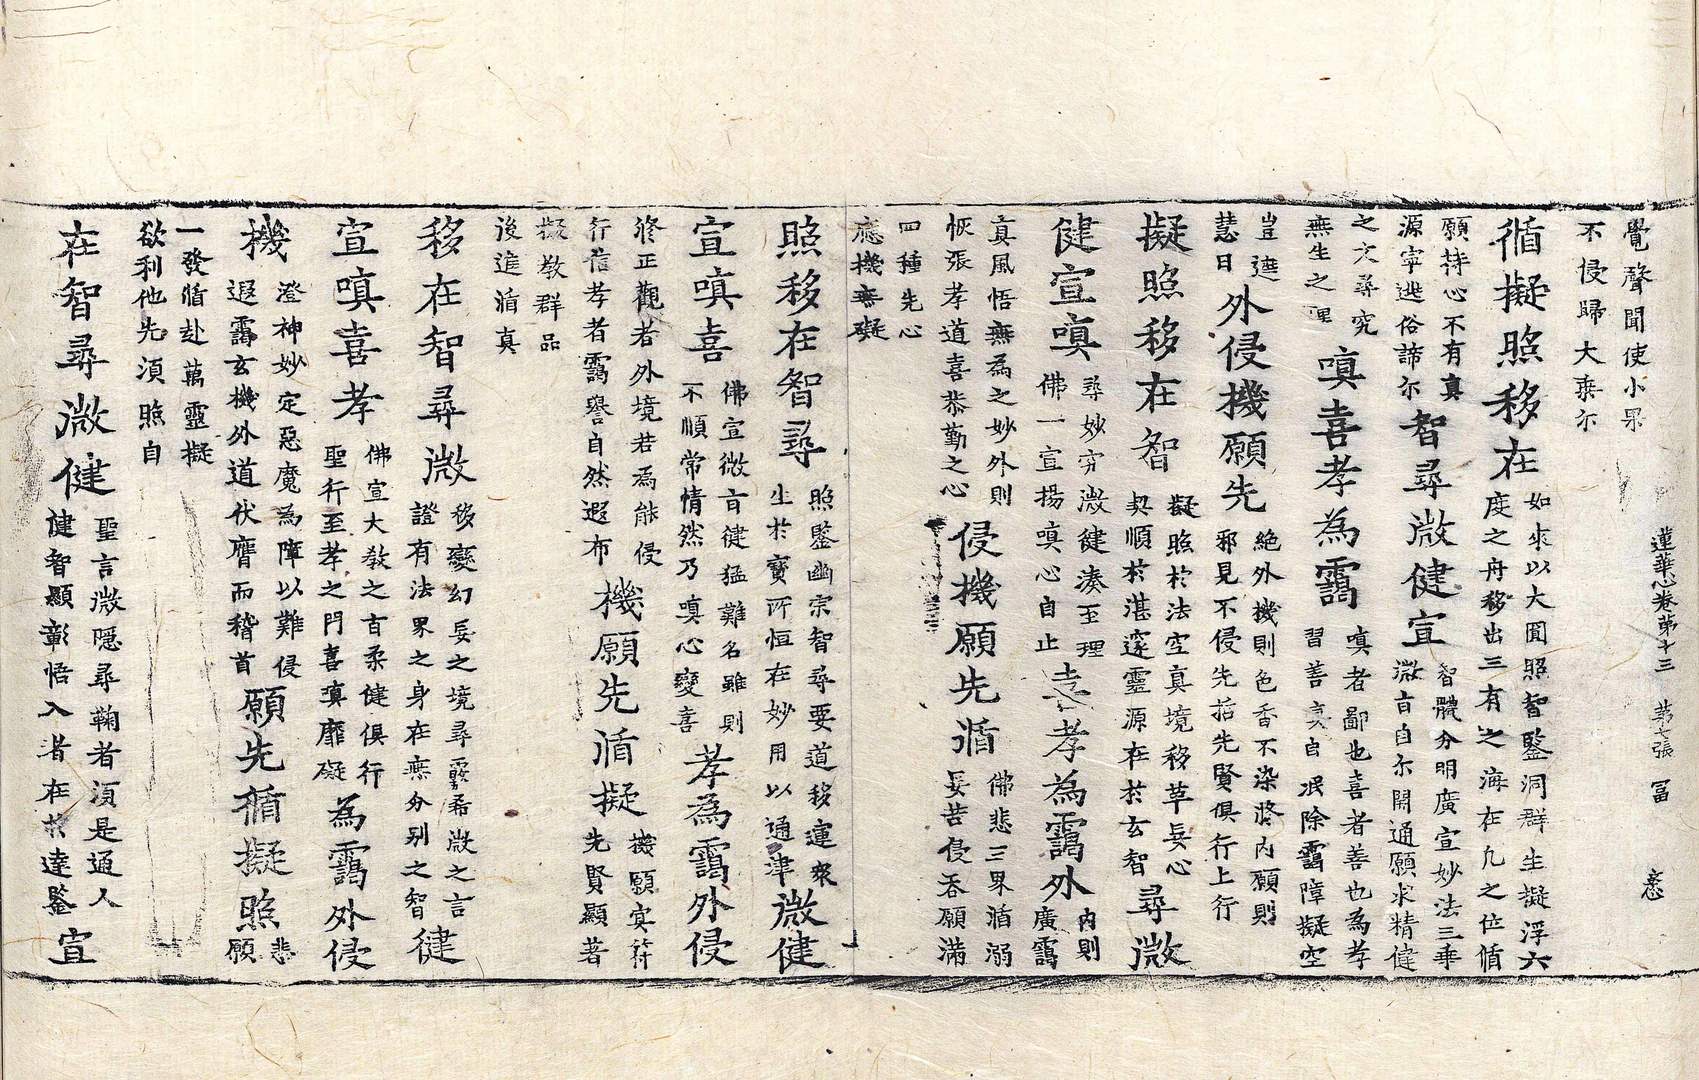 覺聲聞使小果
不侵歸大乘尓
蓮華心卷第十三 第七張 冨
循擬照移在 如來以大圓照智鑒洞群生擬浮六 度之舟移出三有之海在凢之位循
願持心不有真 源寧逃俗諦尓 智尋微健宣 智體分明廣宣妙法三乗 微言自尓開通願求精健
之文尋究 無生之理 嗔喜孝為靄 嗔者鄙也喜者善也為孝 習善真自泯除靄障擬空
豈遮 慧日 外侵機願先 絶外機則色香不染將内願則 邪見不侵先括先賢俱行上行
擬照移在智 擬照於法空真境移草妄心 契順於湛寂靈源在於玄智 尋微
健宣嗔 尋妙穷微健湊至理 佛一宣揚嗔心自止 喜孝為靄外 内則 廣靄
真風悟無為之妙外則 恢張孝道喜恭勤之心 侵機願先循 佛悲三界循溺 妄苦侵吞願滿
四種先心 應機無礙
照移在智尋 照鑒幽宗智尋要道移運衆 生於寶所恒在妙用以通津 微健
宣嗔喜 佛宣微言健猛難名雖則 不順常情然乃嗔心變喜 孝為靄外侵
修正觀者外境若為能侵 行信孝者靄譽自然遐布 機願先循擬 機願寔符 先賢顯著
擬教群品 後進循真
移在智尋微 移變幻妄之境尋覈希微之言 證有法界之身在無分别之智 健
宣嗔喜孝 佛宣大教之言柔健俱行 聖行至孝之門喜嗔靡礙 為靄外侵
機 澄神妙定惡魔為障以難侵 遐靄玄機外道伏膺而稽首 願先循擬照 悲 願
一發循赴萬靈擬 欲利他先須照自
在智尋微健 聖言微隱尋鞠者須是通人 健智顯彰悟入者在於達鑒 宣